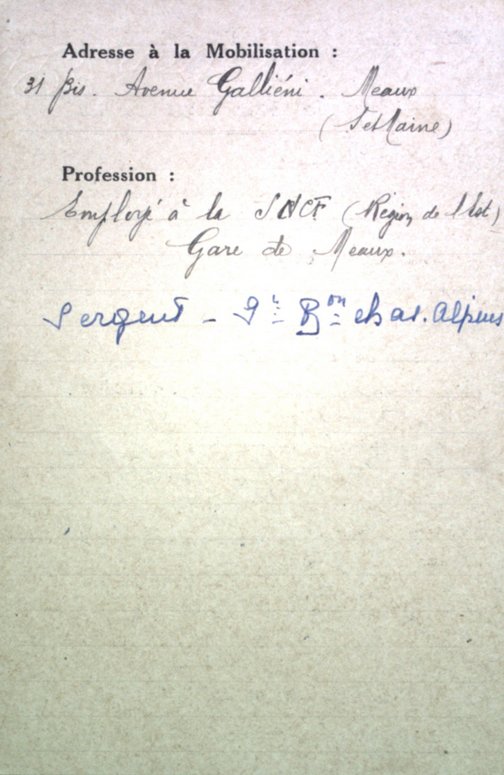 Adresse à la Mobilisation :
31 Bis. Avenue Galliéni. Meaux
(S et Marne)
Profession :
Employé à la SNCF (Région de l'Est)
Gare de Meaux.
Sergent - 9e Bon chas. Alpins